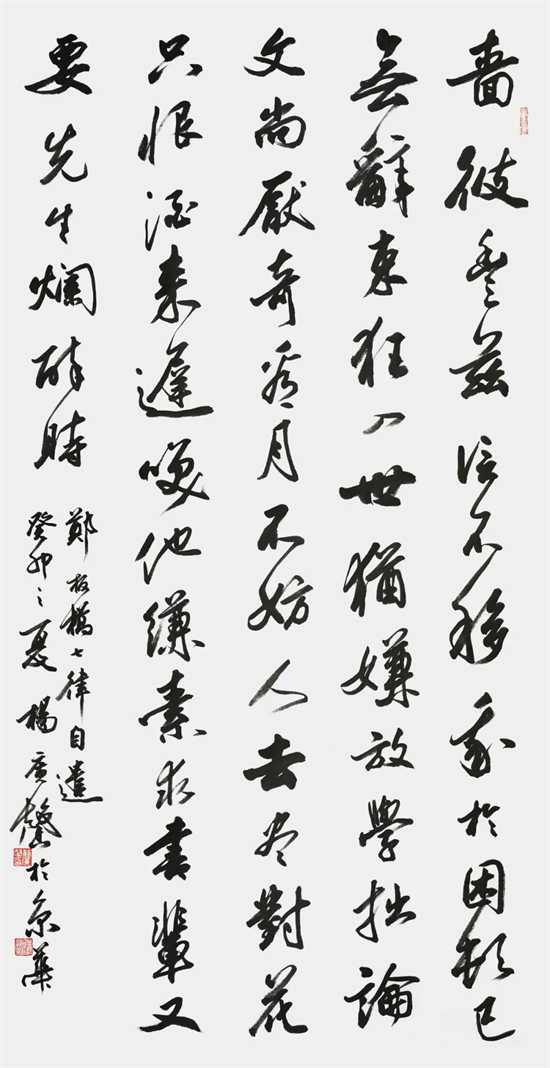 嗇彼豐茲信不移我於困頓已
無辭束狂入世猶嫌放學拙論
文尚厭奇看月不妨人去尽對花
只恨酒来遲咲他縑素求書輩又
要先生爛醉時
鄭板橋七律自遣
癸卯之夏楊廣馨於京華